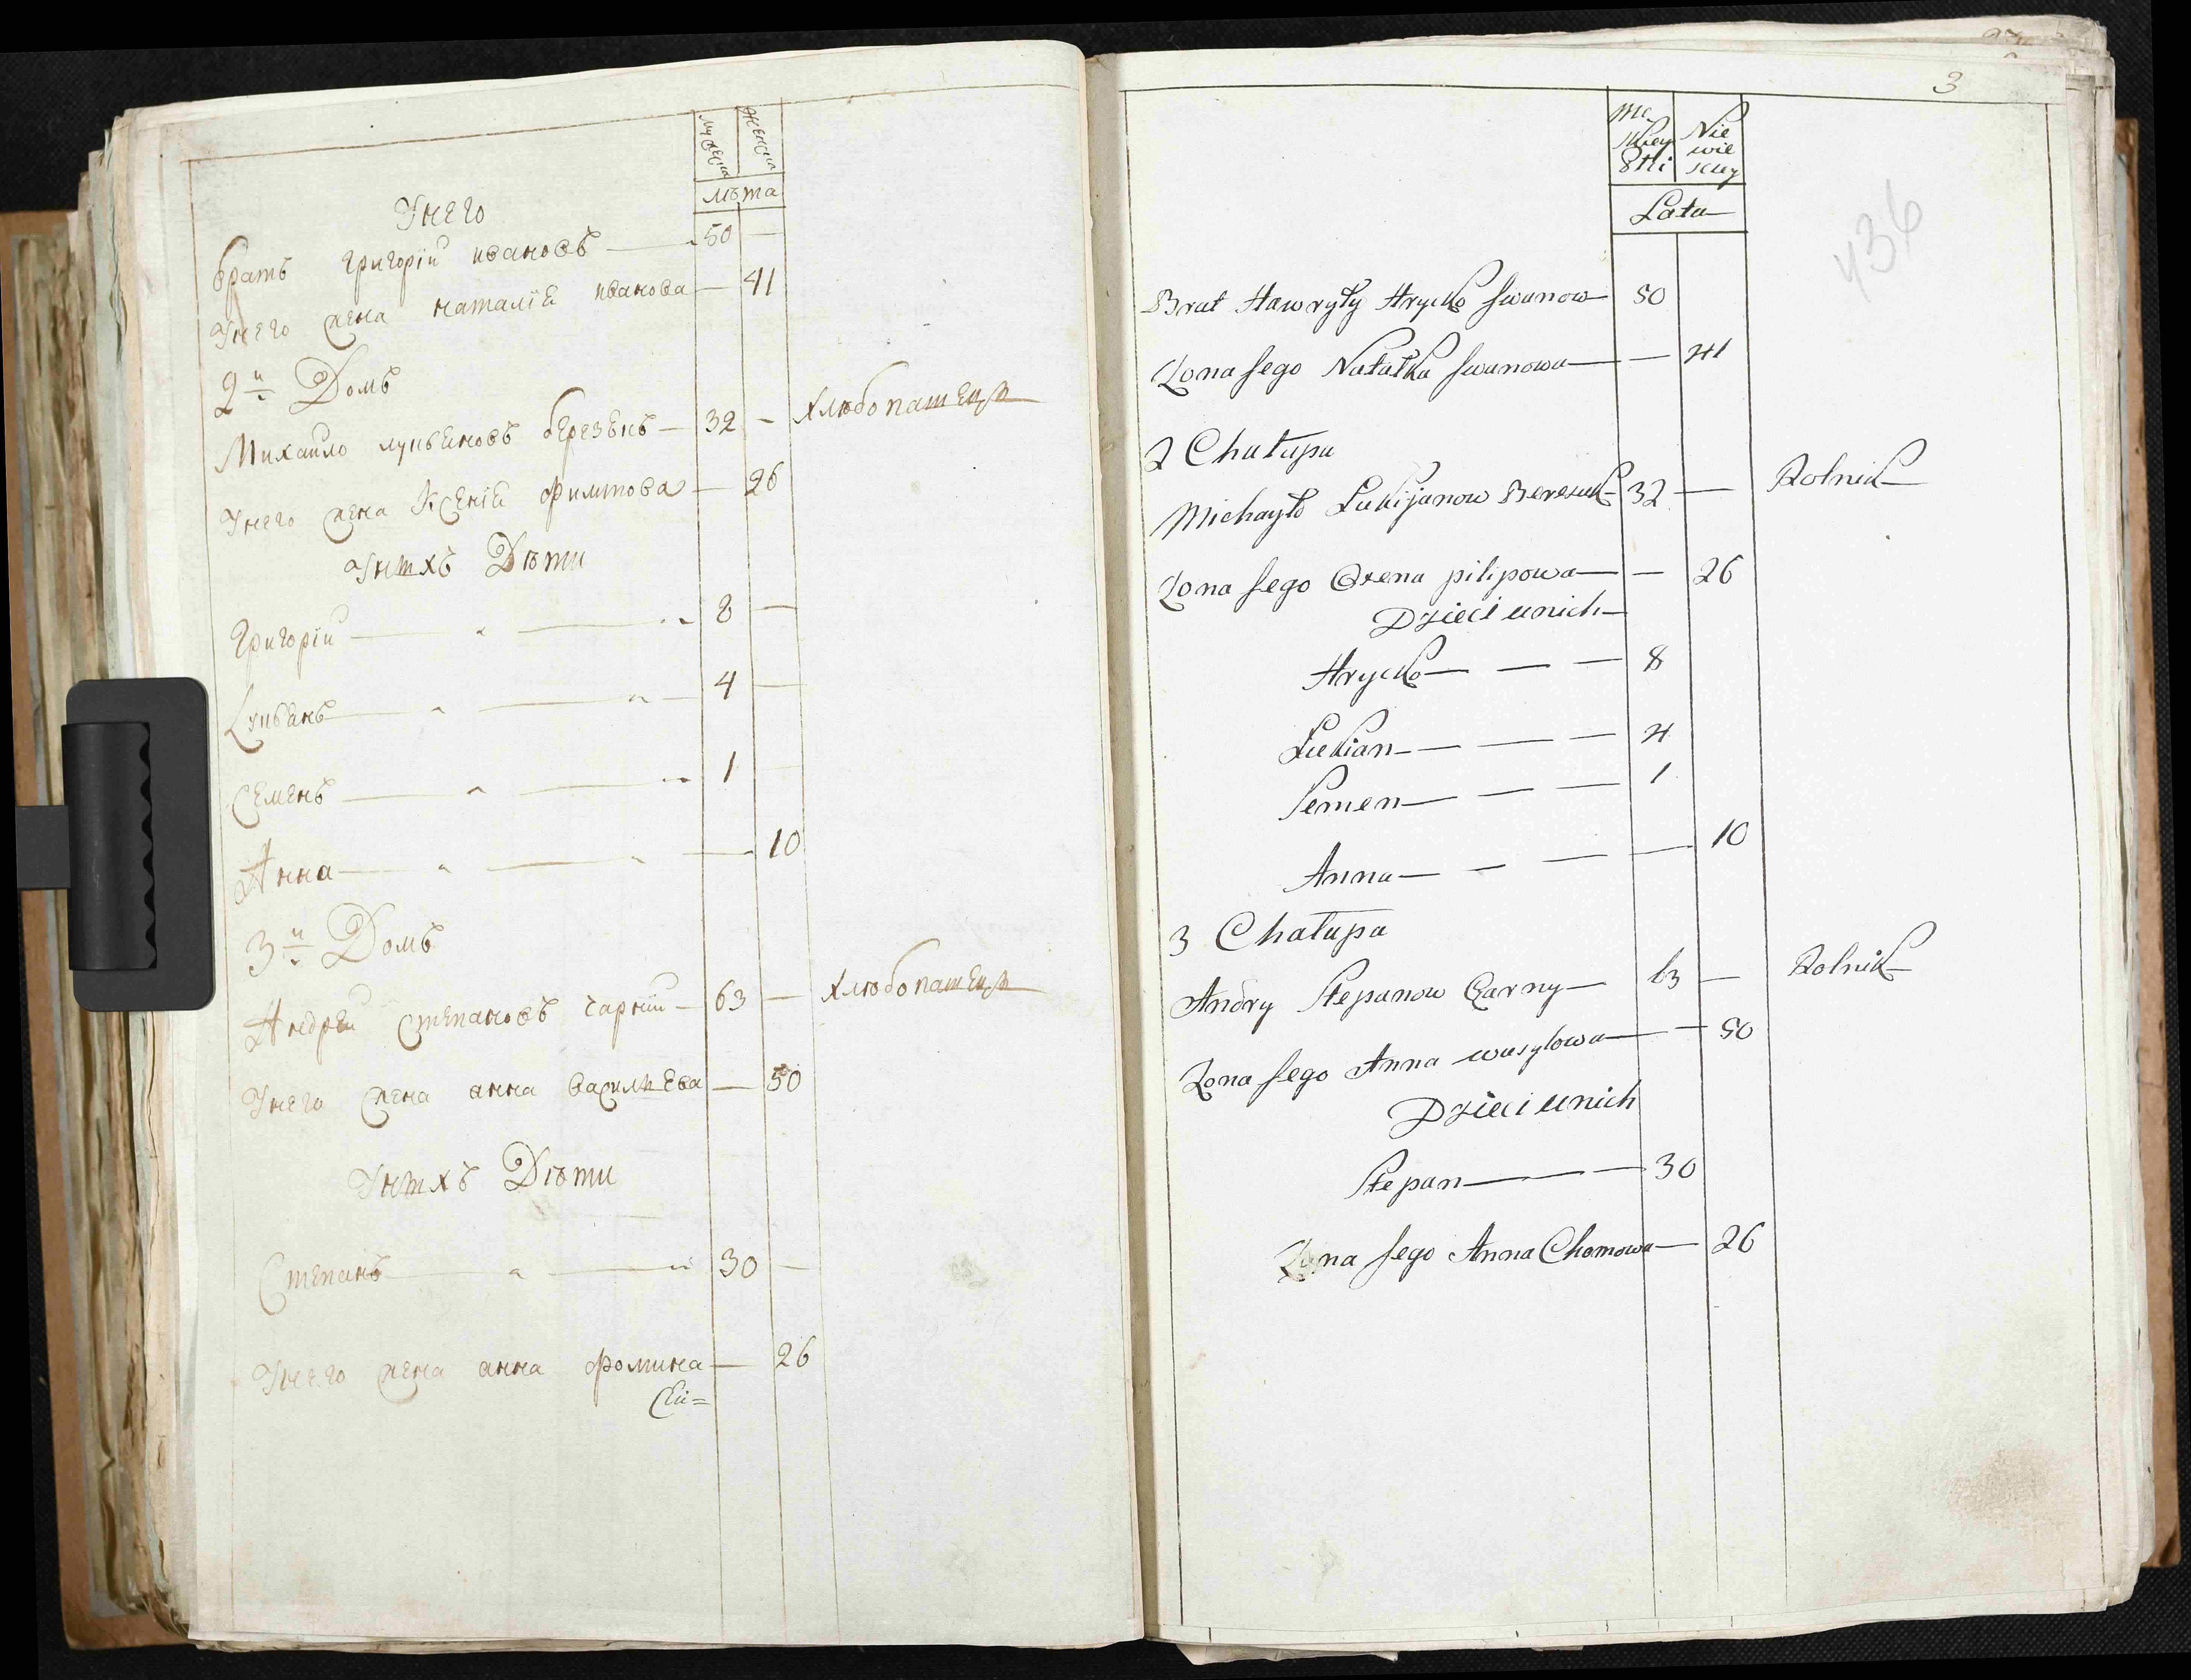 мужеска женска
лѣта
Унего
братъ григорій ивановъ — 50 —
Унего жена наталія иванова — 41
2й Домъ
Михайло лукьяновъ березюкъ — 32 — хлѣбопашецъ
Унего жена Ксенія филипова — 26
Унихъ Дѣти
Григорій — 8 —
Лукьянъ — 4 —
Семенъ — 1
Анна — 10
3й Домъ
Андрей Степановъ чарный — 63 — хлѣбопашецъ
Унего жена анна васильева — 50
Унихъ Дѣти
Степанъ — 30 —
Унего жена анна фомина — 26
3
Nie wie sciey
Lata
436
Brat Hawryły Hrycko Iwanow 50
Żona Jego Natałka Iwanowa — — 41
2 Chałupa
Michayło Łukijanow Berezuk — 32 — Rolnik
Żona Jego Oxena pilipowa — — 26
Dzieci unich
Hrycko — — — 8
Łukian — — — 4
Semen — — — 1
Anna — — — — 10
3 Chałupa
Andry Stepanow Czarny — 63 — Rolnik
Żona Jego Anna wasylowa — — 50
Dzieci unich
Stepan — — 30
Żona Jego Anna Chomowa — 26